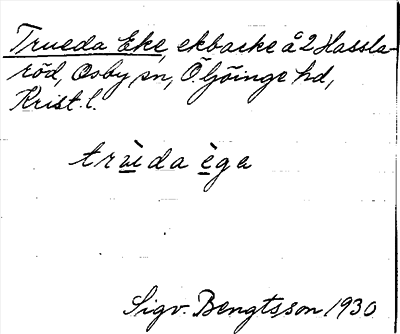 Trueda Eke, ekbacke å 2 Hassla-
röd, Osby sn, Ö Göinge hd,
Krist. l.
trùda èga
Sigv. Bengtsson 1930